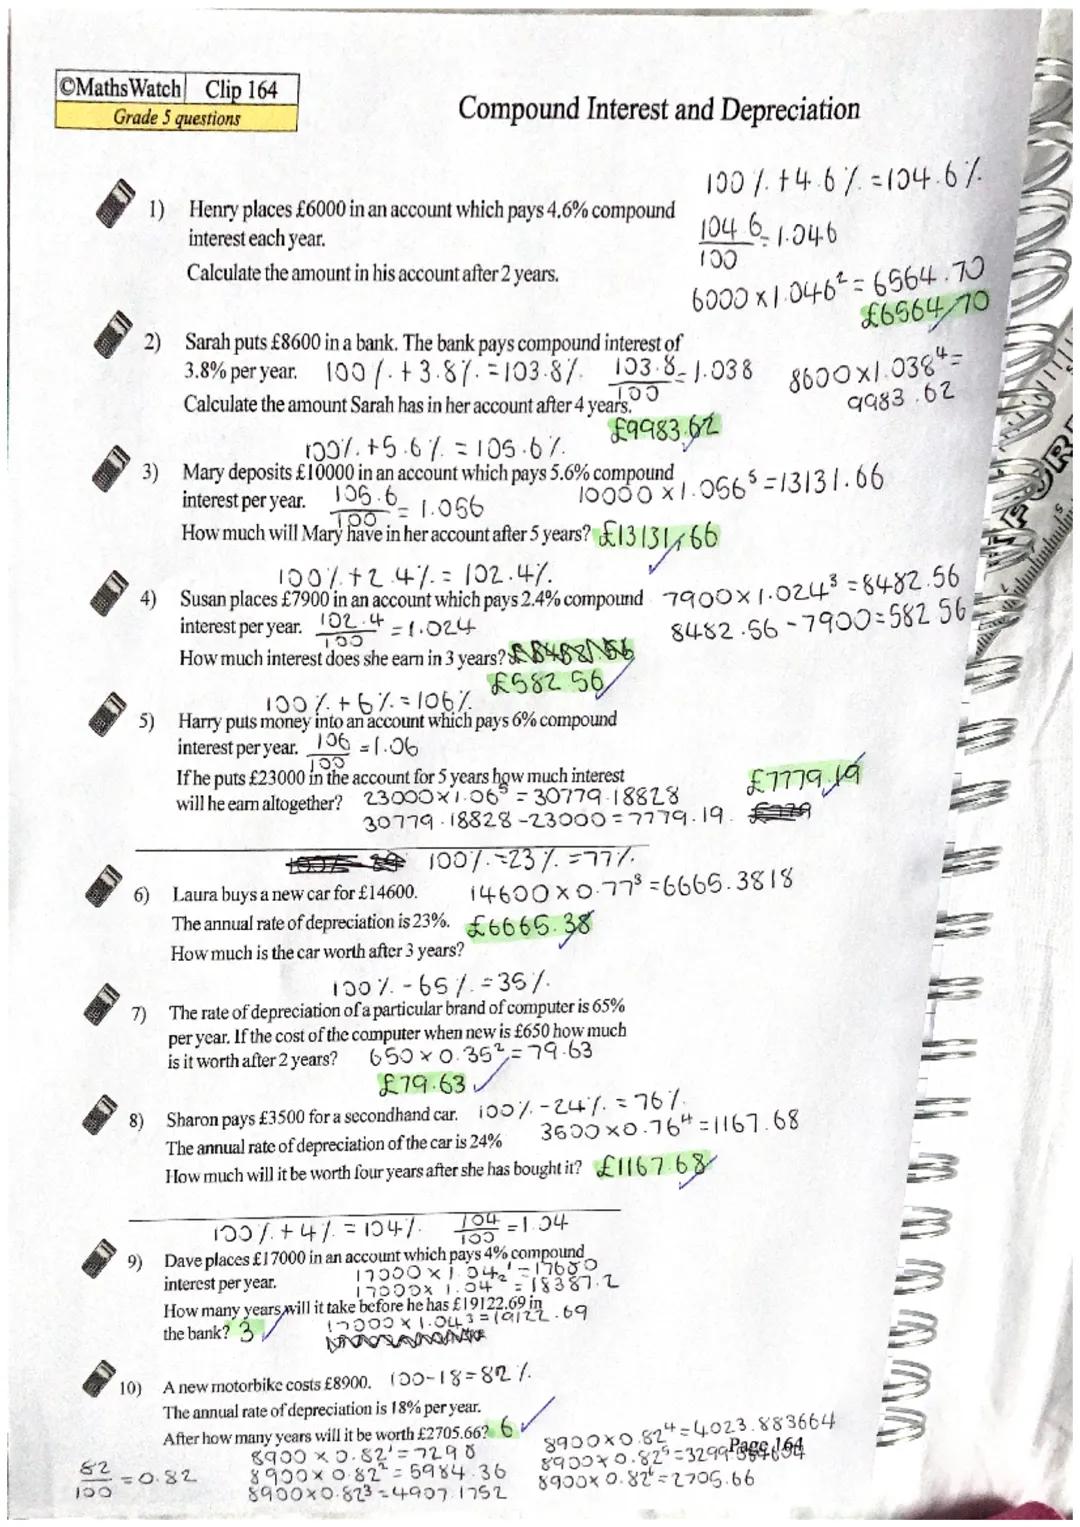 ©MathsWatch Clip 164
Grade 5 questions
Compound Interest and Depreciation
100% + 4.6% = 104.6%
1) Henry places £6000 in an account which pays 4.6% compound
interest each year.
104.6/100 = 1.046
Calculate the amount in his account after 2 years.
6000 × 1.046² = 6564.70
£6564.70
2) Sarah puts £8600 in a bank. The bank pays compound interest of
3.8% per year. 100% + 3.8% = 103.8% 103.8/100 = 1.038
8600 × 1.038⁴ =
9983.62
Calculate the amount Sarah has in her account after 4 years.
£9983.62
100% + 5.6% = 105.6%
3) Mary deposits £10000 in an account which pays 5.6% compound
interest per year. 105.6/100 = 1.056
10000 × 1.056⁵ = 13131.66
How much will Mary have in her account after 5 years? £13131.66
100% + 2.4% = 102.4%
4) Susan places £7900 in an account which pays 2.4% compound
7900 × 1.024³ = 8482.56
interest per year. 102.4/100 = 1.024
8482.56 - 7900 = 582.56
How much interest does she earn in 3 years?
£582.56
100% + 6% = 106%
5) Harry puts money into an account which pays 6% compound
interest per year. 106/100 = 1.06
If he puts £23000 in the account for 5 years how much interest
£7779.19
will he earn altogether? 23000 × 1.06⁵ = 30779.18828
30779.18828 - 23000 = 7779.19
100% - 23% = 77%
6) Laura buys a new car for £14600.
14600 × 0.77³ = 6665.3818
The annual rate of depreciation is 23%. £6665.38
How much is the car worth after 3 years?
100% - 65% = 35%
7) The rate of depreciation of a particular brand of computer is 65%
per year. If the cost of the computer when new is £650 how much
is it worth after 2 years? 650 × 0.35² = 79.63
£79.63
8) Sharon pays £3500 for a secondhand car. 100% - 24% = 76%
The annual rate of depreciation of the car is 24%
3500 × 0.76⁴ = 1167.68
How much will it be worth four years after she has bought it? £1167.68
100% + 4% = 104% 104/100 = 1.04
9) Dave places £17000 in an account which pays 4% compound
interest per year. 17000 × 1.04¹ = 17680
17000 × 1.04² = 18387.2
How many years will it take before he has £19122.69 in
the bank? 3 17000 × 1.04³ = 19122.69
10) A new motorbike costs £8900. 100 - 18 = 82%
The annual rate of depreciation is 18% per year.
After how many years will it be worth £2705.66? 6
82/100 = 0.82
8900 × 0.82¹ = 7298
8900 × 0.82² = 5984.36
8900 × 0.82³ = 4907.1752
8900 × 0.82⁴ = 4023.883664
Page 164
8900 × 0.82⁶ = 2705.66